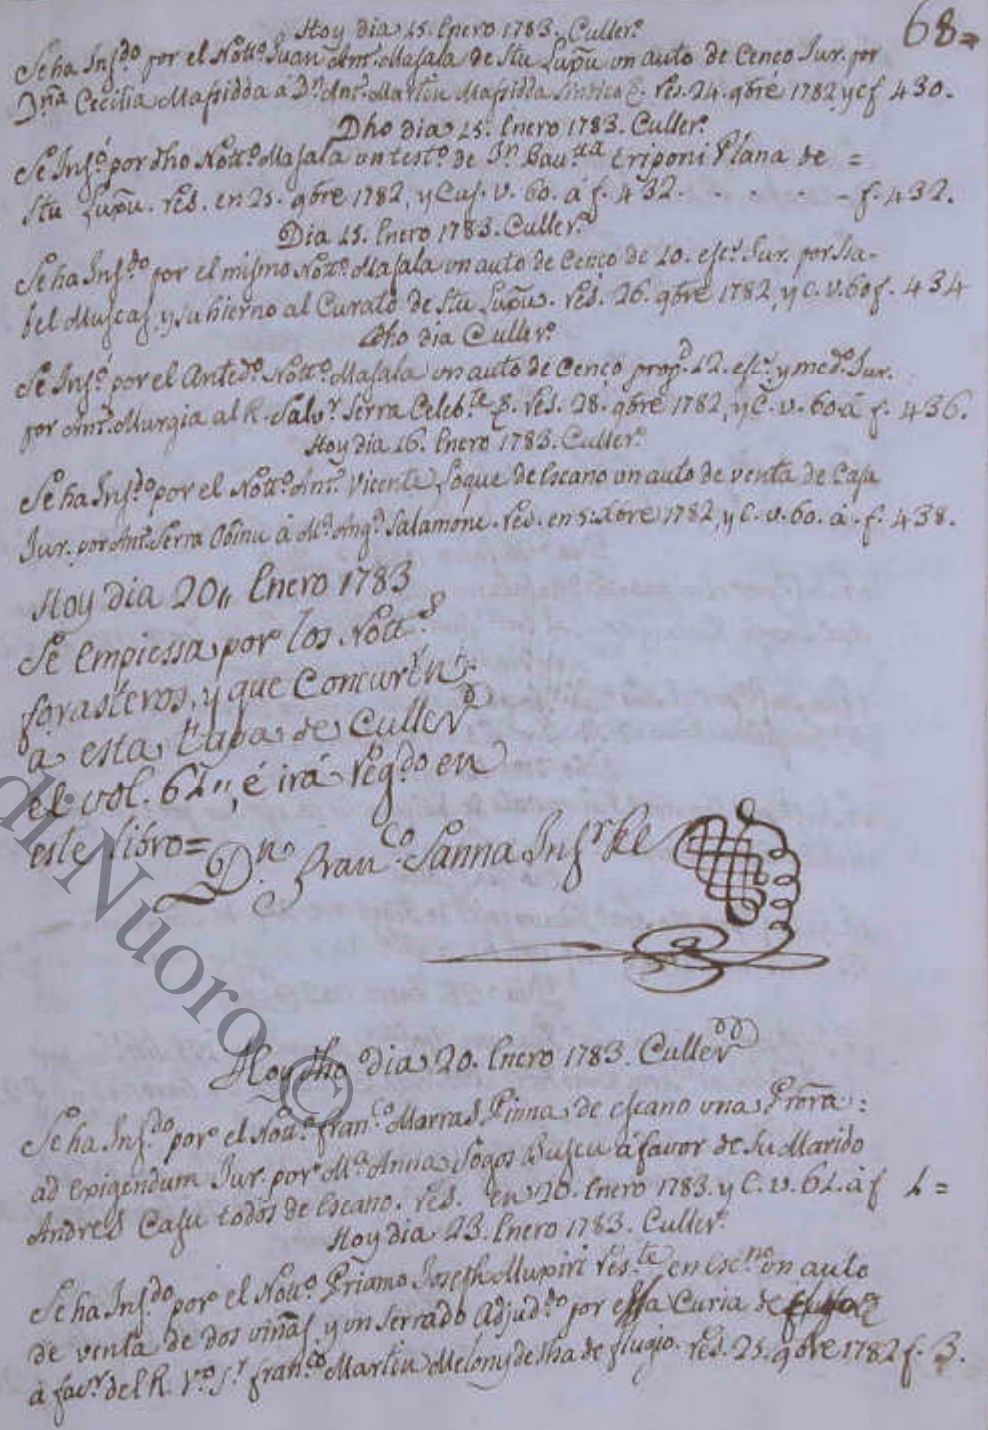 68=
Hoy dia 15. Enero 1783. Cullerª
Se ha Insdo por el Notto Juan Antº Masala de Stu Lupu un auto de Cenço Jur. por
Dña Cecilia Massidda á Dn Antº Martin Massidda res. 24. qbre 1782 y cf 430.
Dho dia 15. Enero 1783. Cullerª
Se Insº por dho Notto Masala un testº de Jn Bautta triponi Piana de =
Stu Lupu. res. en 25. qbre 1782, y Cus. v. 60. á f. 432. - f. 432.
Dia 15. Enero 1783. Cullerª
Se ha Insdo por el mismo Notto Masala un auto de Cenço de 10. escs Jur. por Isa-
bel Muscas, y su hierno al Curato de Stu Lupu. res. 26. qbre 1782, y C. v. 60 f. 434
dho dia Cullerª
Se Insº por el Antedº Notto Masala un auto de Cenço propd 12. escs y medº Jur.
por Antº Murgia al R. Salvr Serra Celebte res. 28. qbre 1782, y C. v. 60. á f. 436.
Hoy dia 16. Enero 1783. Cullerª
Se ha Insdo por el Notto Antº Vicente Soque de Escano un auto de venta de Casa
Jur. por Antº Serra Obinu á Mº Angº Salamone. res. en 5. Xbre 1782, y C. v. 60. á f. 438.
Hoy dia 20,, Enero 1783
Se empiessa por los Notts
forasteros, y que Concurrnt
a esta tapa de Cullerd
el vol. 61,, é irá regdo en
este libro=
Dn Franco Sanna Insr Re
Hoy dho dia 20. Enero 1783. Culler
Se ha Insdo por el Notto Franco Marras Pinna, de escano una Prora:
ad exigendum Jur. por Mª Anna Sogos Buseu á favor de Su Marido
Andres Casu todos de Escano. res. en 20. Enero 1783. y C. v. 61. á f 1=
Hoy dia 23. Enero 1783. Cullerª
Se ha Insdo por el Notto Priamo Joseph Mupiri reste en escno un auto
de venta de dos viñas, y un serrado Adjuddo por essa Curia de
á favr del R. Vº Sr Franco Martin Melony de Sta de flugio. res. 25. qbre 1782 f. 3.
di Nuoro ©